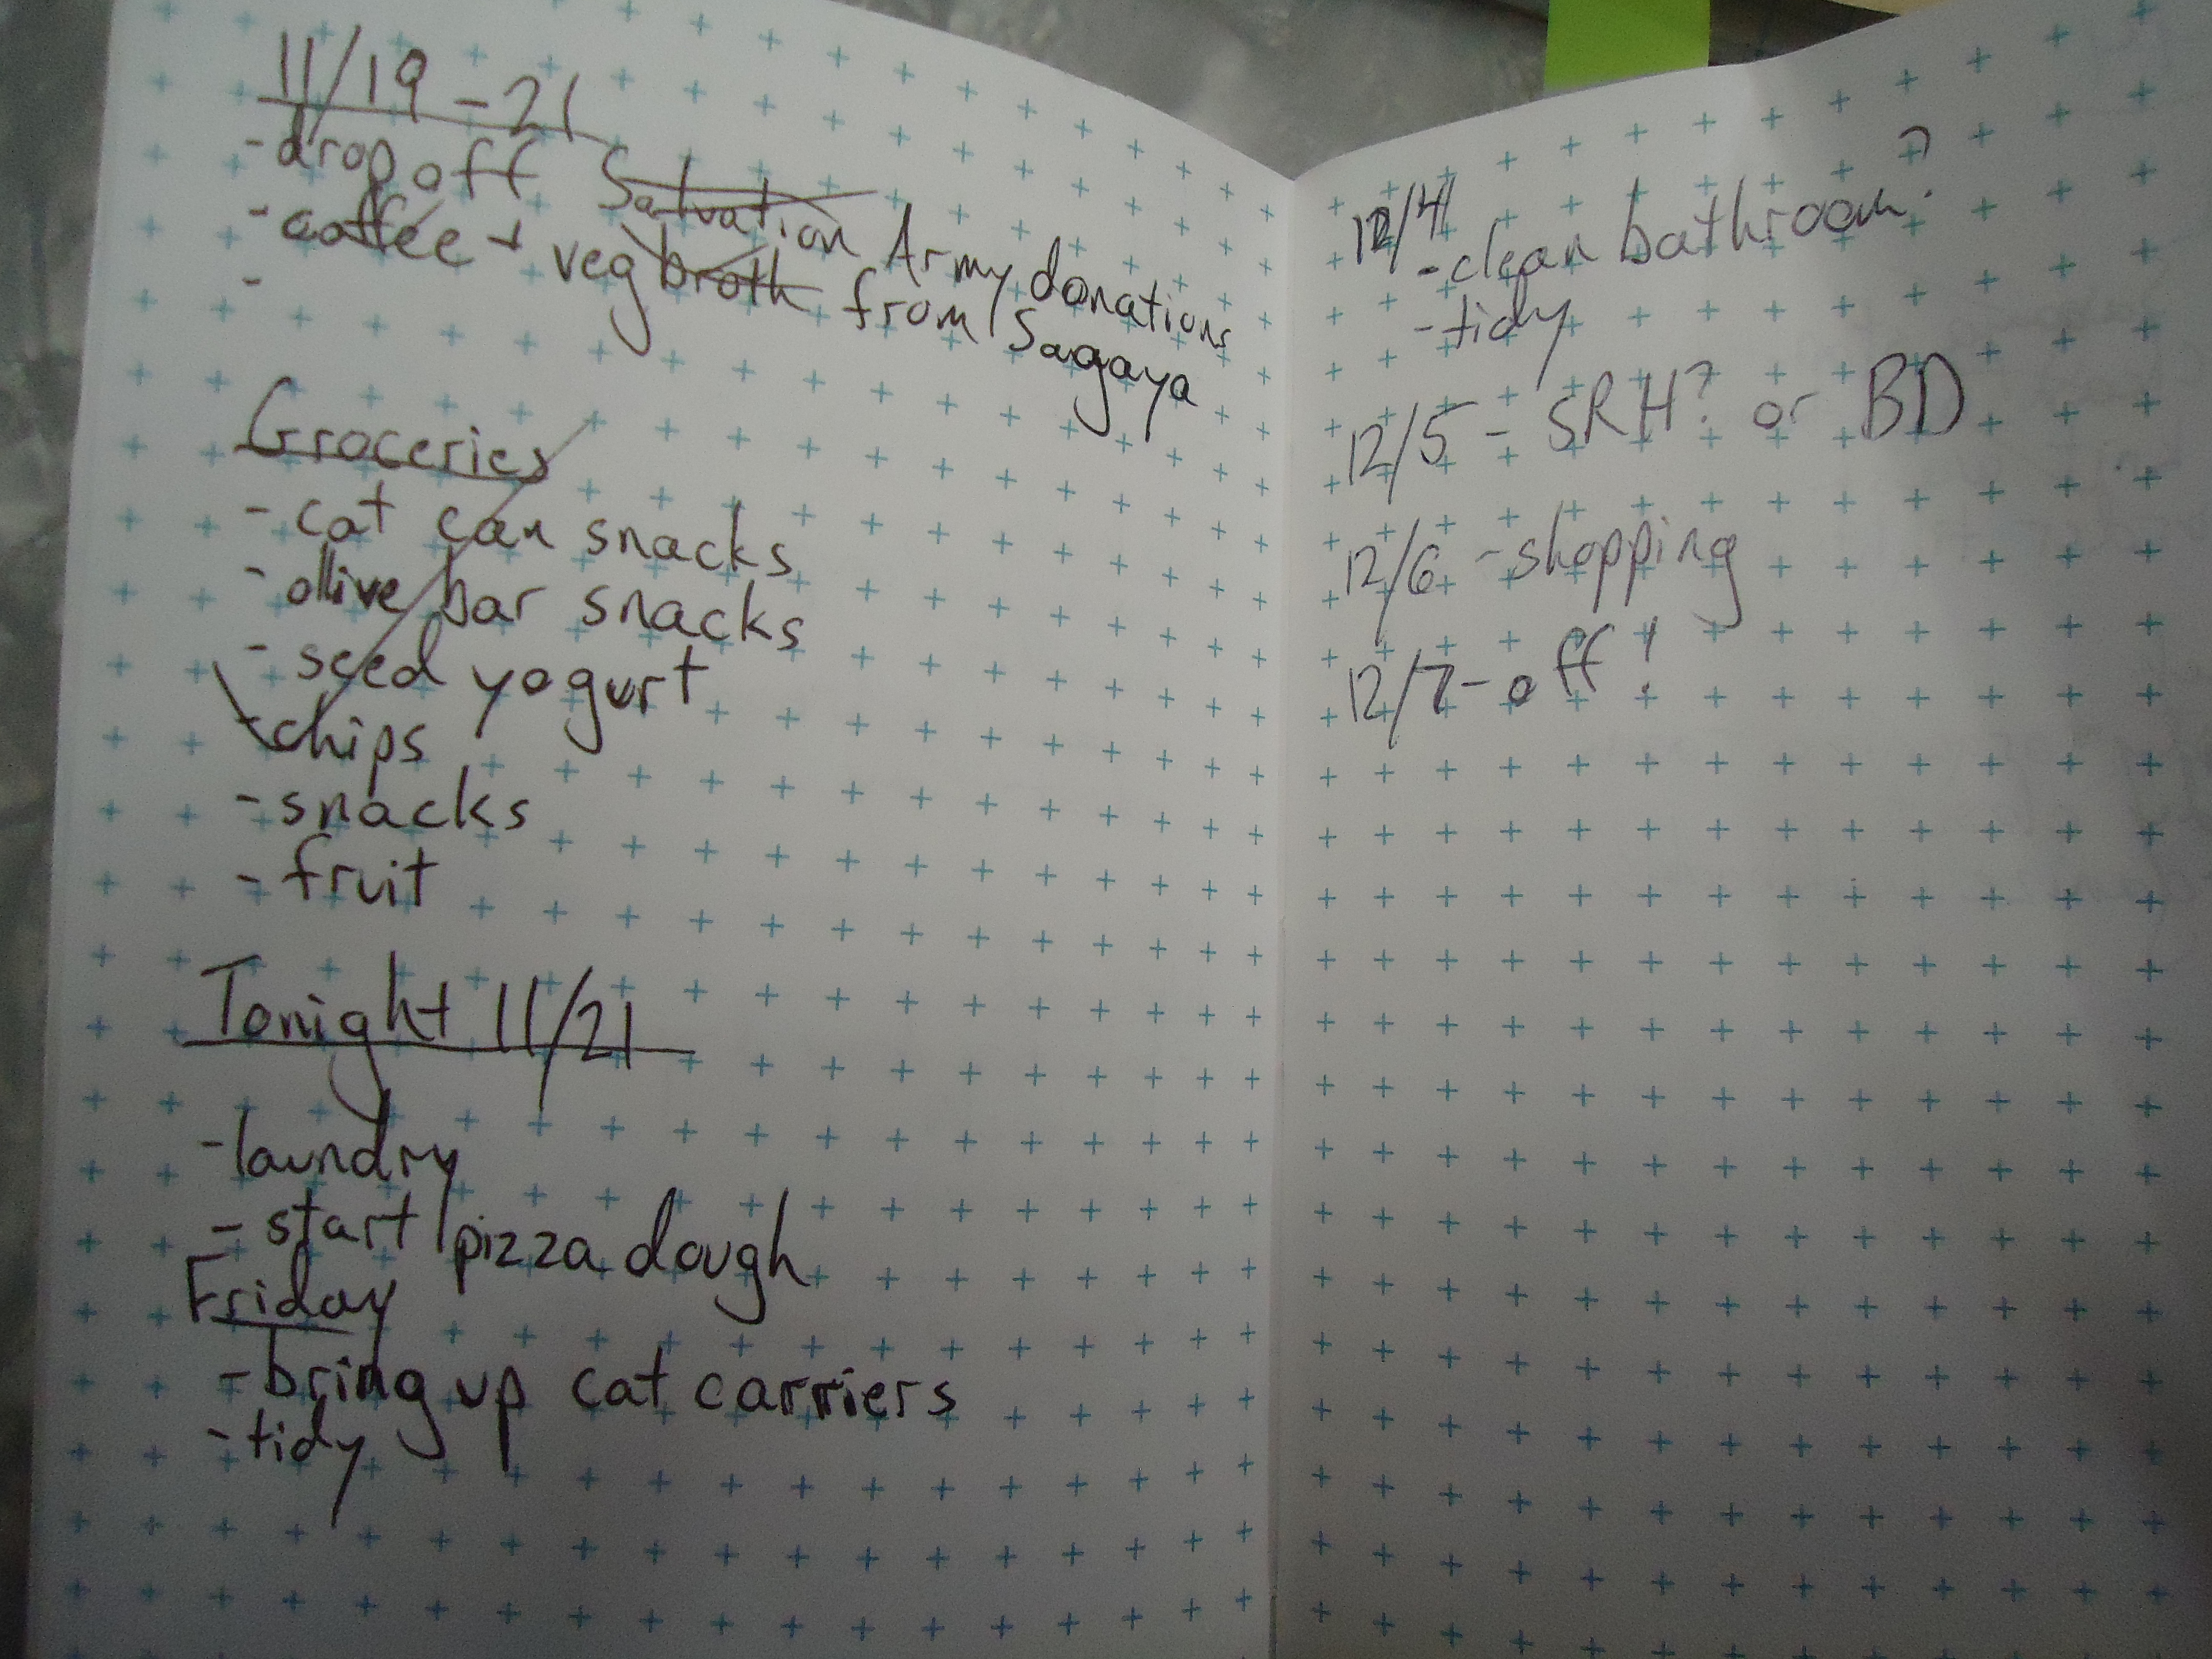 11/19 - 21
- drop off Salvation Army donations
- coffee + veg broth from Sagaya
-
Groceries
- cat can snacks
- olive bar snacks
- seed yogurt
- chips
- snacks
- fruit
Tonight 11/21
- laundry
- start pizza dough
Friday
- bring up cat carriers
- tidy
12/4
- clean bathroom?
- tidy
12/5 - SRH? or BD
12/6 - shopping
12/7 - off!